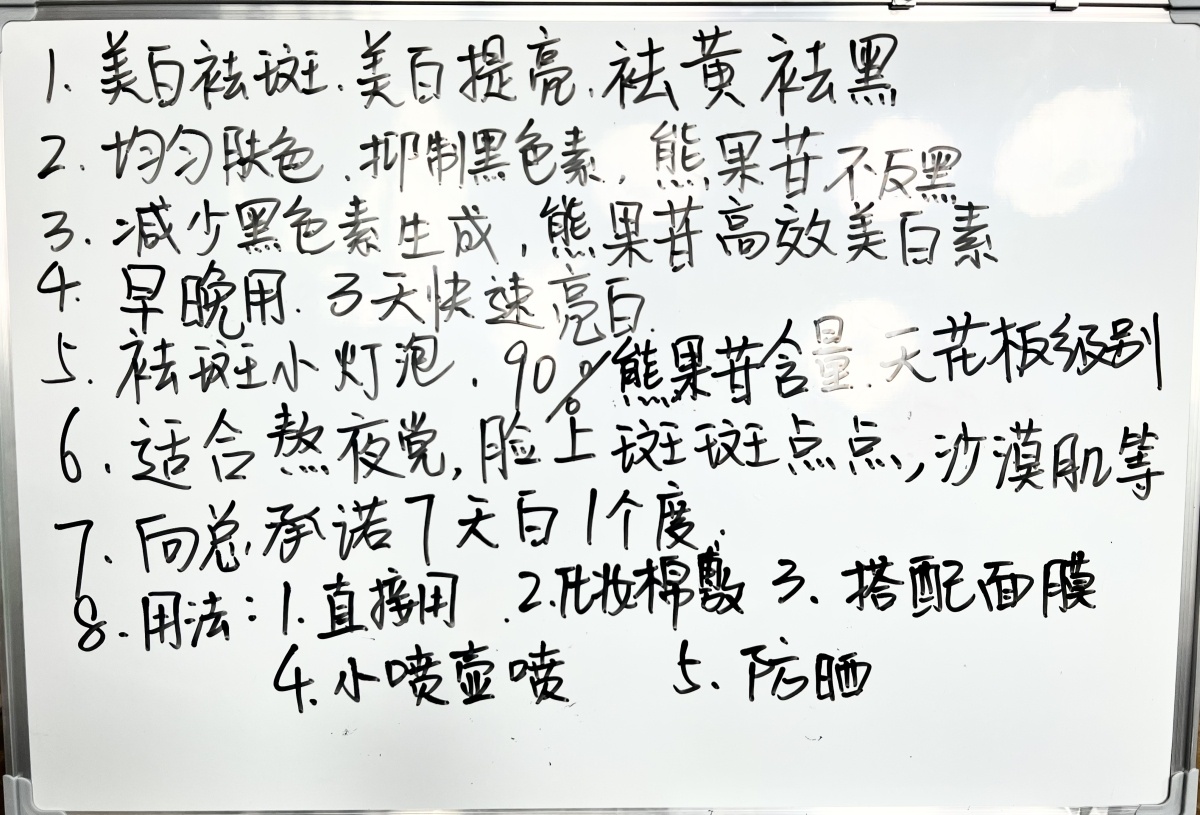 1. 美白祛斑.美白提亮.祛黄祛黑
2. 均匀肤色.抑制黑色素,熊果苷不反黑
3. 减少黑色素生成,熊果苷高效美白素
4. 早晚用.3天快速亮白.
5. 祛斑小灯泡.90%熊果苷含量.天花板级别
6. 适合熬夜党,脸上斑斑点点,沙漠肌等
7. 向总承诺7天白1个度.
8. 用法:1.直接用 2.化妆棉敷 3.搭配面膜
4.小喷壶喷 5.防晒